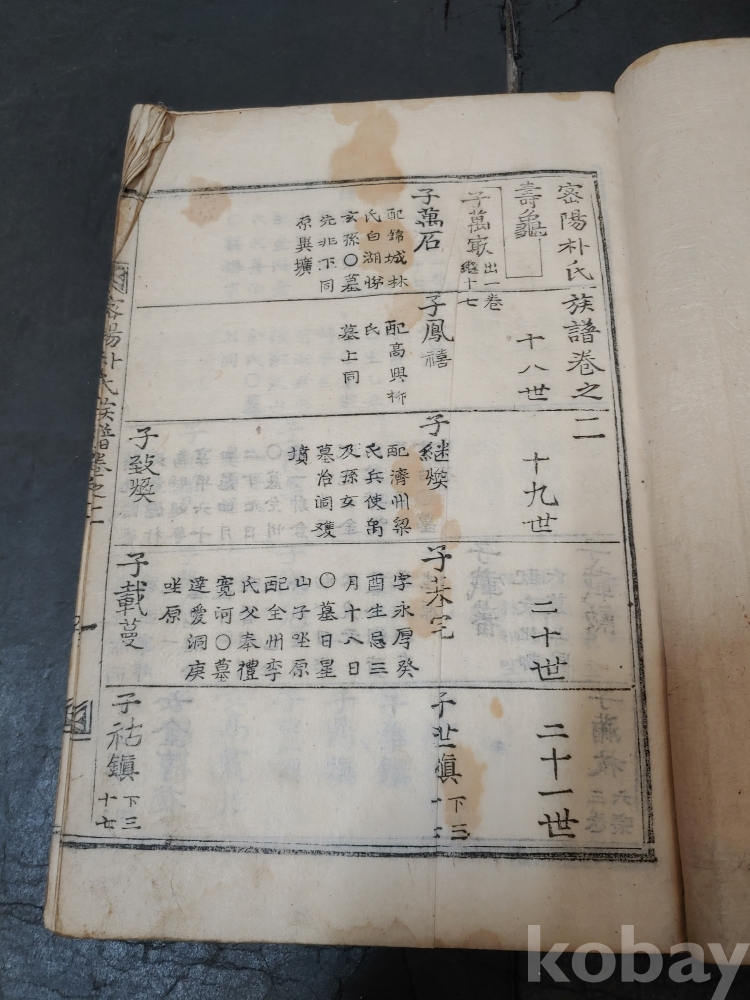 密陽朴氏族譜卷之二
十八世
十九世
二十世
二十一世
壽龜
子萬
出一卷
繼十七
子萬石
配錦城林
氏白湖悌
玄孫〇墓
先兆下同
原異壙
子鳳禧
配高興柳
氏
墓上同
子繼煥
配濟州梁
氏兵使禹
及孫女金
墓治洞雙
墳
子宅
字永厚癸
酉生忌三
月十八日
〇墓日星
山子坐原
配全州李
氏父奉禮
寬河〇墓
達愛洞庚
坐原
子世鎭
下三
子致煥
子載蔓
子祜鎭
下三
十七
密陽朴氏族譜卷之二
kobay